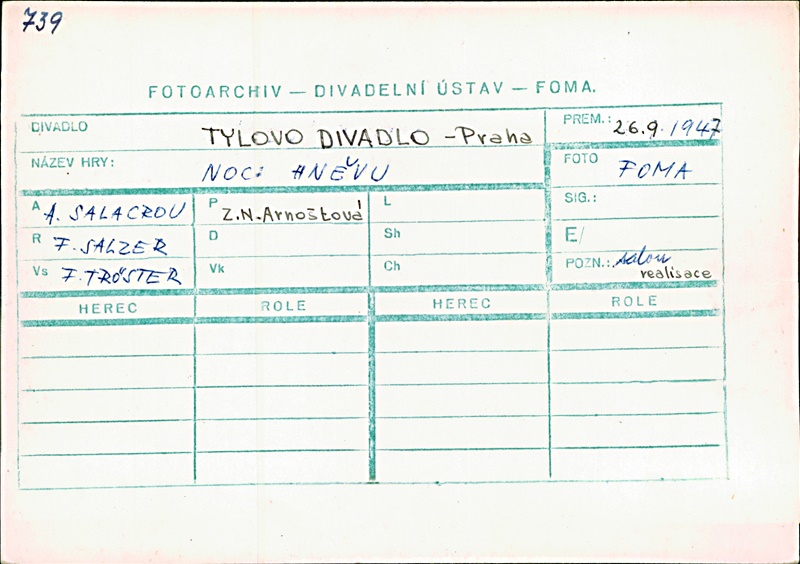 739
FOTOARCHIV — DIVADELNÍ ÚSTAV — FOMA.
DIVADLO TYLOVO DIVADLO - Praha
PREM.: 26.9.1947
NÁZEV HRY: NOCI HNĚVU
FOTO FOMA
A A. SALACROU
P Z.N.Arnoštová
L
SIG.:
R F. SALZER
D
Sh
E/
Vs F. TRÖSTER
Vk
Ch
POZN.: salon
realisace
HEREC ROLE HEREC ROLE